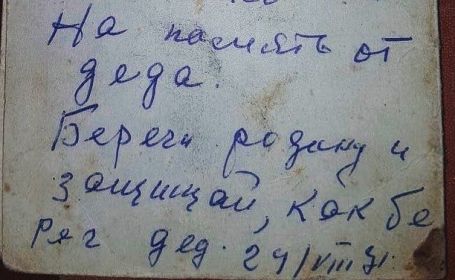 На память от
деда.
Береги родину и
защищай, как бе
рег дед. 24/VIII 71.